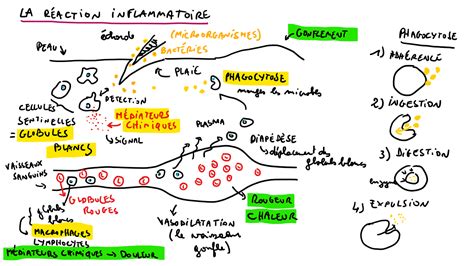 LA RÉACTION INFLAMMATOIRE
Écharde
(MICROORGANISMES)
BACTÉRIES
GONFLEMENT
PEAU
PLAIE
PHAGOCYTOSE
mange les microbes
CELLULES
SENTINELLES
= GLOBULES
BLANCS
DÉTECTION
MÉDIATEURS
CHIMIQUES
↳ SIGNAL
PLASMA
DIAPÉDÈSE
↳ déplacement des globules blancs
VAISSEAUX
SANGUINS
GLOBULES
ROUGES
globules
blancs
MACROPHAGES
LYMPHOCYTES
VASODILATATION
(le vaisseau
gonfle)
ROUGEUR
CHALEUR
MÉDIATEURS CHIMIQUES → DOULEUR
PHAGOCYTOSE
1) ADHÉRENCE
2) INGESTION
3) DIGESTION
enzymes
4) EXPULSION